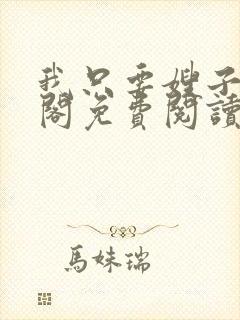 我只要嫂子
閣免費閱讀
馬妹瑞